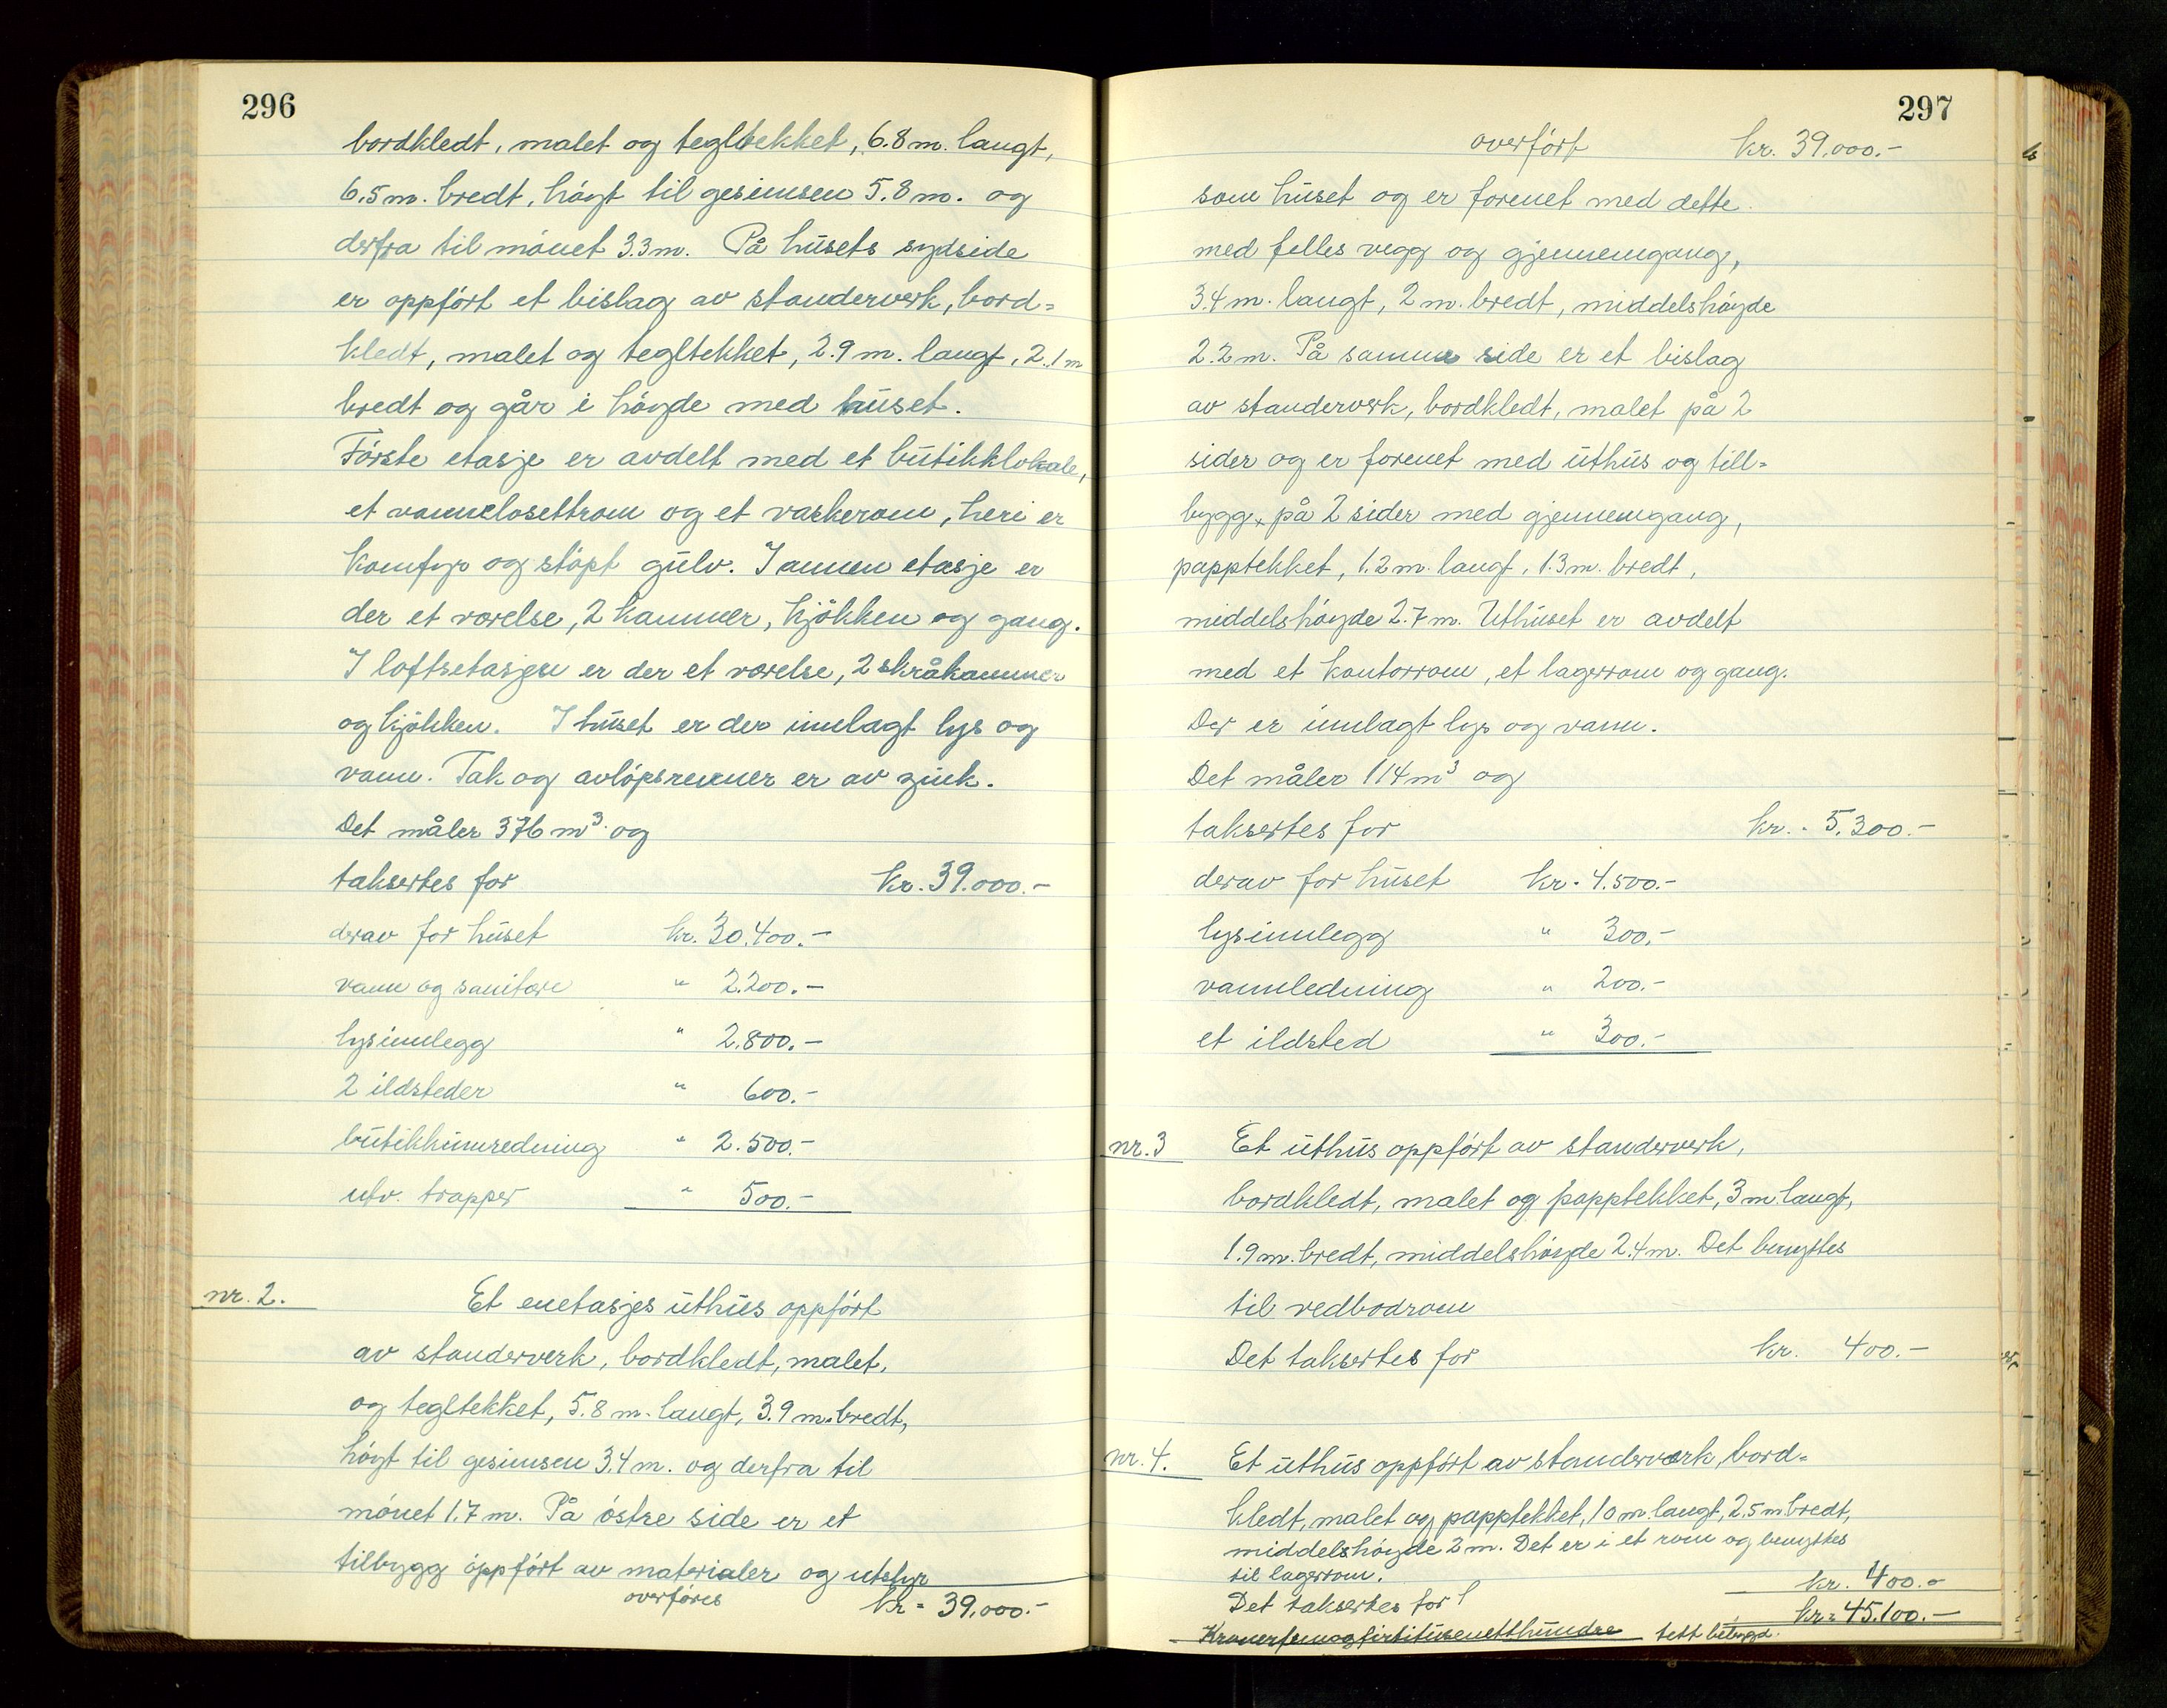 296
bordkledt, malet og tegltekket, 6.8 m. langt,
6.5 m. bredt, høyt til gesimsen 5.8 m. og
derfra til mønet 3.3 m. På husets sydside
er oppført et bislag av standerverk, bord=
kledt, malet og tegltekket, 2.9 m. langt, 2.1 m
bredt og går i høyde med huset.
Første etasje er avdelt med et butikklokale,
et vannclosettrom og et vaskerom, heri er
komfyr og støpt gulv. I annen etasje er
der et værelse, 2 kammer, kjøkken og gang.
I loftsetasjen er der et værelse, 2 skråkammer
og kjøkken. I huset er der innlagt lys og
vann. Tak og avløpsrenner er av zink.
Det måler 376 m³ og
takseres for kr. 39.000.-
derav for huset kr. 30.400.-
vann og sanitære " 2.200.-
lysinnlegg " 2.800.-
2 ildsteder " 600.-
butikkinnredning " 2.500.-
utv. trapper " 500.-
nr. 2. Et enetasjes uthus oppført
av standerverk, bordkledt, malet,
og tegltekket, 5.8 m. langt, 3.9 m. bredt,
høyt til gesimsen 3.4 m. og derfra til
mønet 1.7 m. På østre side er et
tilbygg oppført av materialer og utstyr
overføres kr = 39.000.-
297
overført kr. 39.000.-
som huset og er forenet med dette
med felles vegg og gjennemgang,
3.4 m. langt, 2 m. bredt, middelshøyde
2.2 m. På samme side er et bislag
av standerverk, bordkledt, malet på 2
sider og er forenet med uthus og till=
bygg, på 2 sider med gjennemgang,
papptekket, 1.2 m. langt, 1.3 m. bredt,
middelshøyde 2.7 m. Uthuset er avdelt
med et kontorrom, et lagerrom og gang.
Der er innlagt lys og vann.
Det måler 114 m³ og
taksertes for kr. - 5.300.-
derav for huset kr. 4.500.-
lysinnlegg " 300.-
vannledning " 200.-
et ildsted " 300.-
nr. 3 Et uthus oppført av standerverk,
bordkledt, malet og papptekket, 3 m langt,
1.9 m. bredt, middelshøyde 2.4 m. Det benyttes
til vedbodrom
Det taksertes for kr. 400.-
nr. 4. Et uthus oppført av standerværk, bord=
kledt, malet og papptekket, 10 m. langt, 2.5 m bredt,
middelshøyde 2 m. Det er i et rom og benyttes
til lagerrom.
Det taksertes for kr. 400.-
kr = 45.100.-
Kronerfemogfirtitusenetthundre tett bebygd.